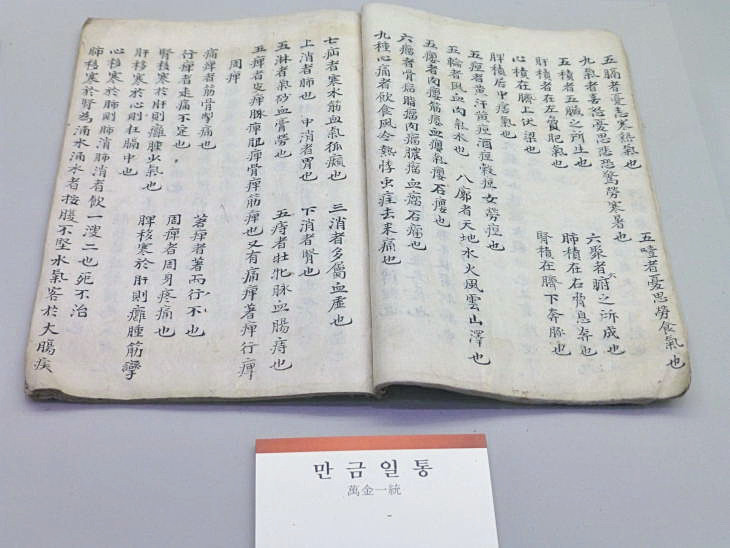 五膈者憂恚寒熱氣也　五噎者憂思勞食氣也
九氣者喜怒憂思悲恐驚勞寒暑也
五積者五臟之所生也　六聚者六腑之所成也
肝積者在左肥氣也　肺積在右脅息奔也
心積在臍上伏梁也　腎積在臍下奔豚也
脾積居中痞氣也
五疸者黃汗黃疸酒疸穀疸女勞疸也
五輪者風血肉氣水也　八廓者天地水火風雲山澤也
五癭者肉癭筋癭血癭氣癭石癭也
六瘤者骨瘤脂瘤肉瘤膿瘤血瘤石瘤也
九種心痛者飲食風冷熱悸虫疰去來痛也
七疝者寒水筋血氣狐癩也　三消者多屬血虛也
上消者肺也　中消者胃也　下消者腎也
五淋者氣砂血膏勞也　五痔者牡牝脉血腸痔也
五痺者皮痺脉痺肌痺骨痺筋痺也又有痛痺著痺行痺
周痺
痛痺者筋骨掣痛也　著痺者著而行不也
行痺者走痛不定也　周痺者周身疼痛也
腎移寒於肝則癰腫少氣也　脾移寒於肝則癰腫筋攣
肝移寒於心則狂膈中也
心移寒於肺則肺消肺消者飲一溲二也死不治
肺移寒於腎為涌水涌水者按腹不堅水氣客於大腸疾
만금일통
萬金一統